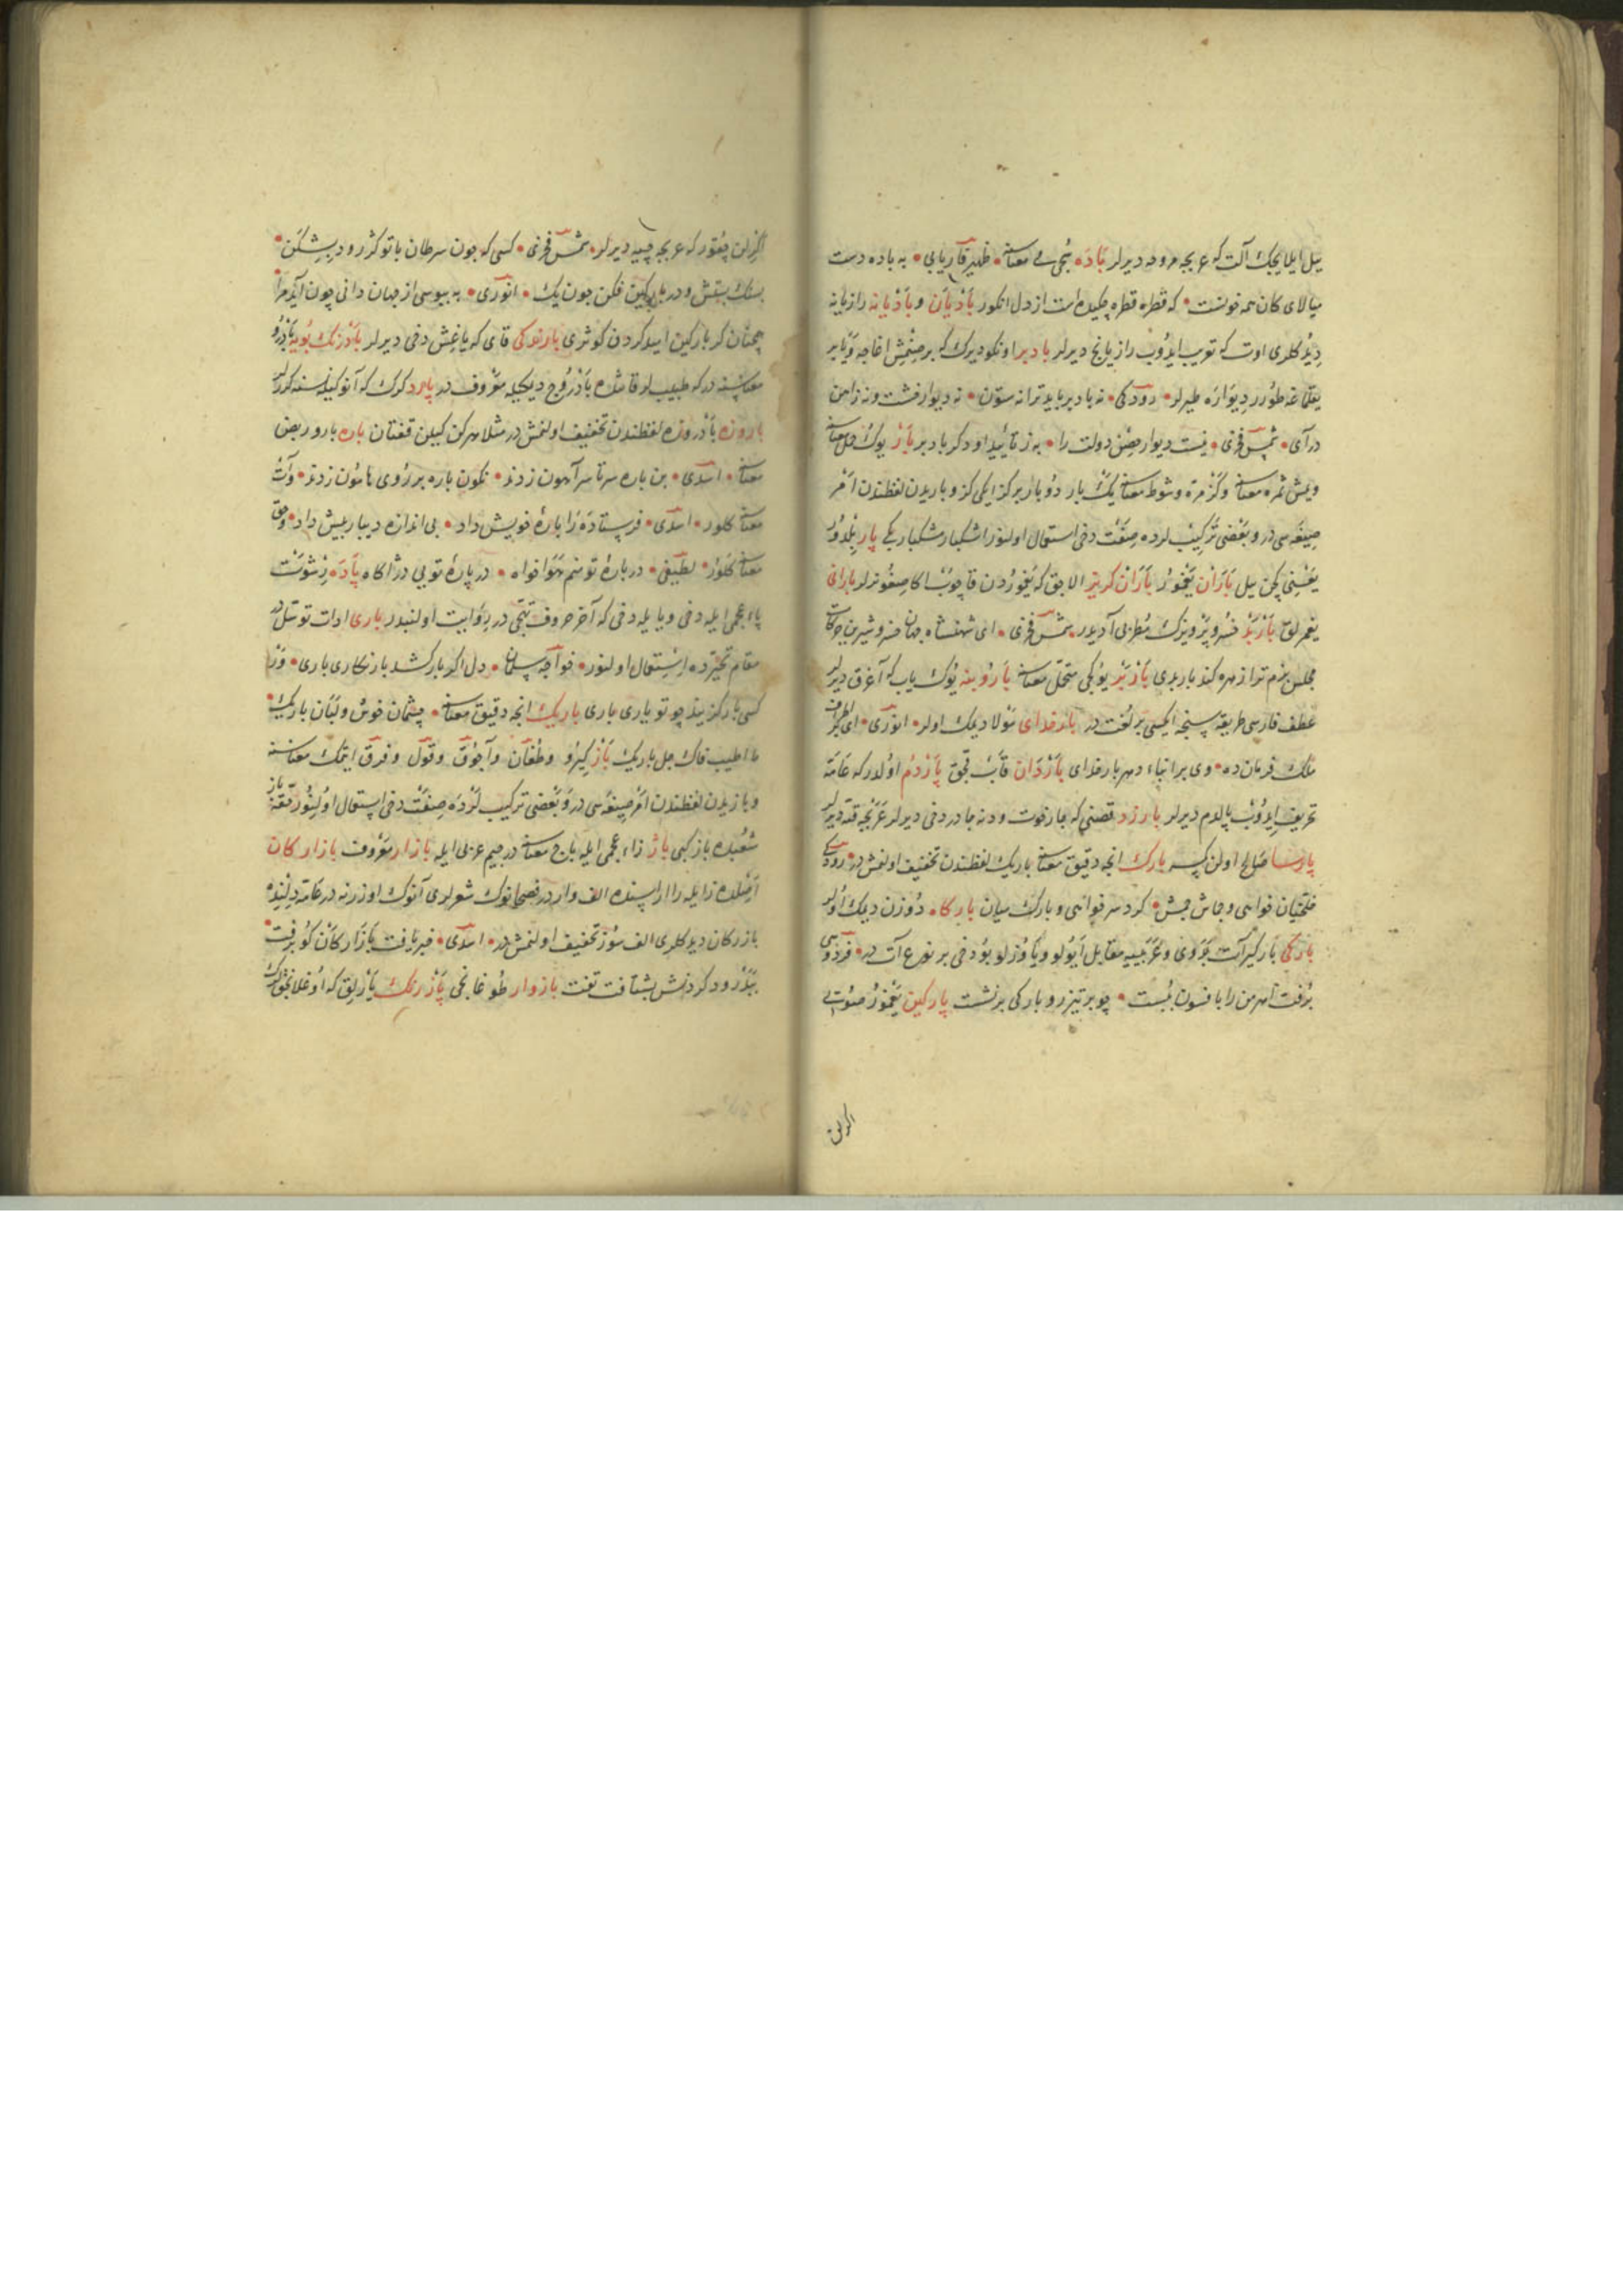 ييل ايلايجك آلت كه عربجه مروحه ديرلر بَادَه نجى مى معناسنه • ظهير فاريابى • به باده دست
ميالاى كان همه خونست • كه قطره قطره چكيده است از دل انكور بَادْيَان و بَادْيَانه رازيانه
ديدكلرى اوت كه تعريب ايدوب رازيانج ديرلر بادير اونكو ديرك كه بر صنمش اغاجه و يا بر
يقلماغه طورر ديواره طيرلر • رودكى • نه بادير بايد ترا نه ستون • نه ديوار خشت و نه زاهن
درآى • شمس فخرى • نيست ديوار حصن دولت را • به ز تأييد او دكر بادير بَار يوك حمل معناسنه
ويمش ثمره معناسنه و كز مرة و شوط معناسنه يك بار دو بار بر كز ايكى كز و باريدن لفظندن امر
صيغه سى در و بعضى تركيب لرده صفت دخى استعمال اولنور اشكبار مشكبار كبى پار بلدور
يعنى كچن ييل بَارَان يغمور بَارَان كريز الاچق كه يغموردن قاچوب اكا صغنورلر بارانى
يغمرلق بَارْبَد خسرو پرويزك مطربى آديدر • شمس فخرى • اى شهنشاه جهان خسرو شيرين حركات
مجلس بزم ترا زهره كند باربدى بَارْبَر يوكجى متحمل معناسنه بَار و بنه يوك ياب كه آغرق ديرلر
عطف فارسى طريقه سنجه ايكيسى بر لغت در بارخداى مولا ديمك اولر • انورى • اى بر اطراف
ملك فرمان ده • وى بر ابناء دهر بارخداى بَارْدَان قاب قجق پَارْدُم اولدر كه عامه
تحريف ايدوب پالدم ديرلر بارزد قصنى كه جازقوت و دنه جادر دخى ديرلر عربجه قنه ديرلر
پارسا صالح اولن كسه بارك انجه دقيق معناسنه باريك لفظندن تخفيف اولنمش در • رودكى
خلخيان خواهى و جماش چشم • كرد سر خواهى و بارك ميان باركاه دوزن ديمك اولر
باركى باركير آت بدوى و عربيه مقابل ايولو و ياوزلو بو دخى بر نوع آت در • فردوسى
برفت اهرمن را بافسون ببست • چو بر تيزرو باركى برنشت پاركين يغمور صوئى
اكرلن
اكرلن چقوردر كه عربجه چيه ديرلر • شمس فخرى • كسى كه چون سرطان با تو كژ رود بشكن •
بسنك پشتش و در پاركين فكن چون يك • انورى • به بيوسى از جهان دانى چون آيد مرا
همچنان كز پاركين اميد كردن كوثرى بارندكى قاى كه ياغش دخى ديرلر بَادْرَنك بُويَه بَادْرُو
معناسنه در كه طبيب لر قاتنده بَادْرُوج ديمكله معروف در بارود كرك كه آنوكيله نسنه كدرلر
باروزه بادروزه لفظندن تخفيف اولنمش در مثلا هركن كيلن قفتان باره بارو و ربض
معناسنه • اسدى • بن باره سرتاسر آهون زدند • نكون باره بر روى هامون زدند • و آت
معناسنه كلور • اسدى • فرستاده را بارهٔ خويش داد • بى اندازه ديبار بيش داد • و حق
معناسنه كلور • لطيفى • دربارهٔ تو منم هوا خواه • در بارهٔ تو بى درا كاه پَادَه رشوت
پاء عجمى ايله دخى و يا ايله دخى كه آخر حروف تهجى در روايت اولنبدر بارى ادات توسل در
مقام تحيرده استعمال اولنور • خواجه سلمان • دل اكر بار كشد بار نكارى بارى • ورنه
كسى يار كزيند چو تو يارى بارى باريك انجه دقيق معناسنه • چشمان خوش و لبان باريك •
ما اطيب فاك جل باريك بَاز كيرو و طُغَان و آچوق و قول و فرق ايتمك معناسنه
و بازيدن لفظندن امر صيغه سى در و بعضى تركيب لرده صفت دخى استعمال اولنور حقه باز
شعبده باز كبى بَاژ زاء عجمى ايله باج معناسنه در جيم عربى ايله بازار معروف بازاركان
اصلده زا ايله را ارا سنده الف وار در فصحا نوك شعرلرى آنوك اوزرنه در عامه دلنده
بازركان ديدكلرى الف سوز تخفيف اولنمش در • اسدى • خبر يافت بازاركان كو برفت •
بپدرود كردنش بشتافت تفت بازوار طوغانجى پَازْرنك يازلق كه اوغلانجقلرك